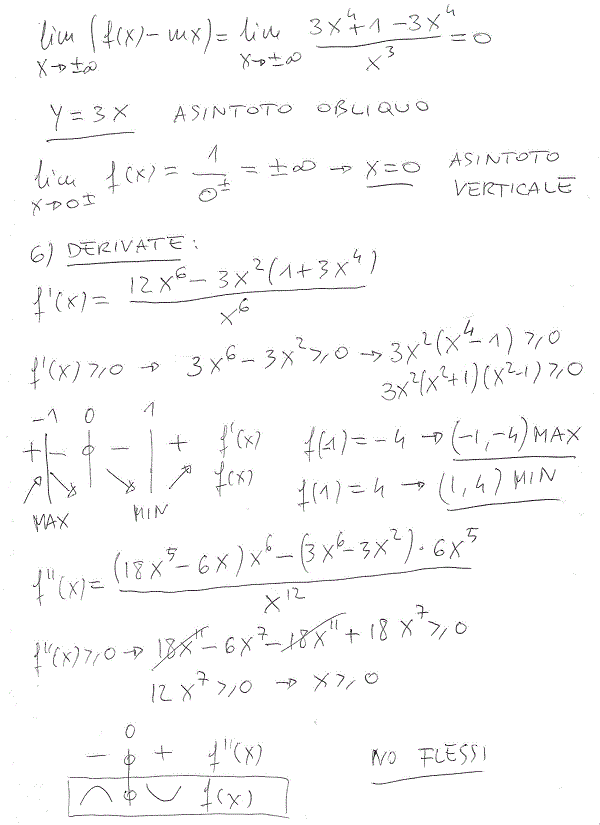 lim (f(x)-mx) = lim (3x⁴+1-3x⁴)/x³ = 0
x→±∞ x→±∞
y=3x ASINTOTO OBLIQUO
lim f(x) = 1/0^± = ±∞ → x=0 ASINTOTO
x→0± VERTICALE
6) DERIVATE:
f'(x) = (12x⁶ - 3x²(1+3x⁴))/x⁶
f'(x) ≥ 0 → 3x⁶ - 3x² ≥ 0 → 3x²(x⁴-1) ≥ 0
3x²(x²+1)(x²-1) ≥ 0
-1 0 1
+ - - + f'(x) f(1) = -4 → (-1,-4) MAX
f(x)
MAX MIN f(1) = 4 → (1,4) MIN
f''(x) = ((18x⁵ - 6x)x⁶ - (3x⁶ - 3x²)·6x⁵)/x¹²
f''(x) ≥ 0 → 18x¹¹ - 6x⁷ - 18x¹¹ + 18x⁷ ≥ 0
12x⁷ ≥ 0 → x ≥ 0
0
- + f''(x) NO FLESSI
f(x)